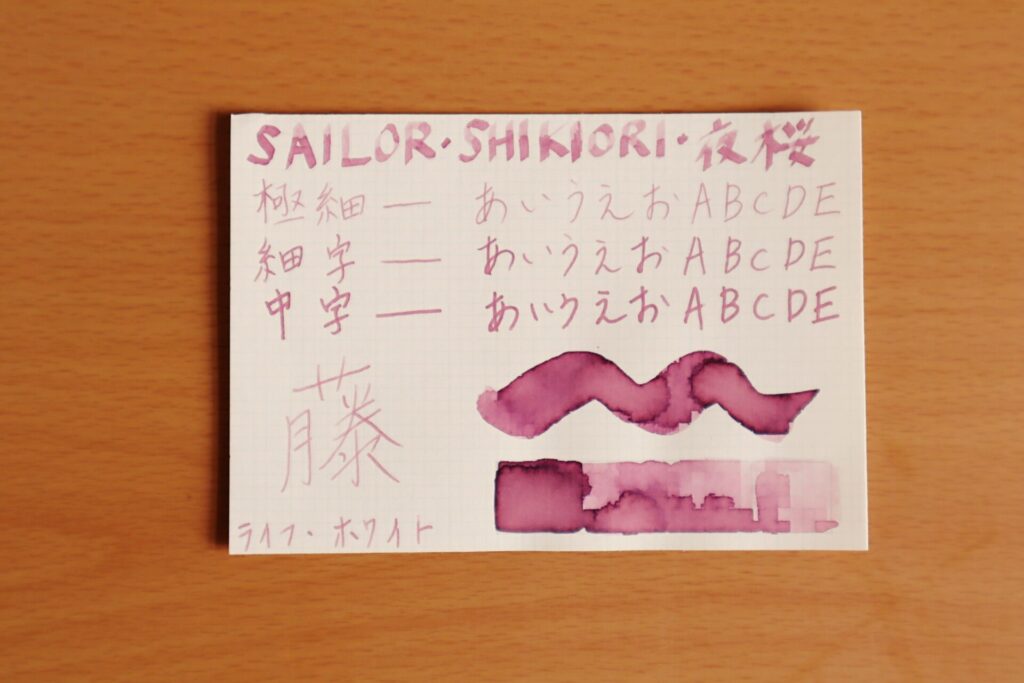 SAILOR・SHIKIORI・夜桜
極細 — あいうえお ABCDE
細字 — あいうえお ABCDE
中字 — あいうえお ABCDE
藤
ライフ・ホワイト